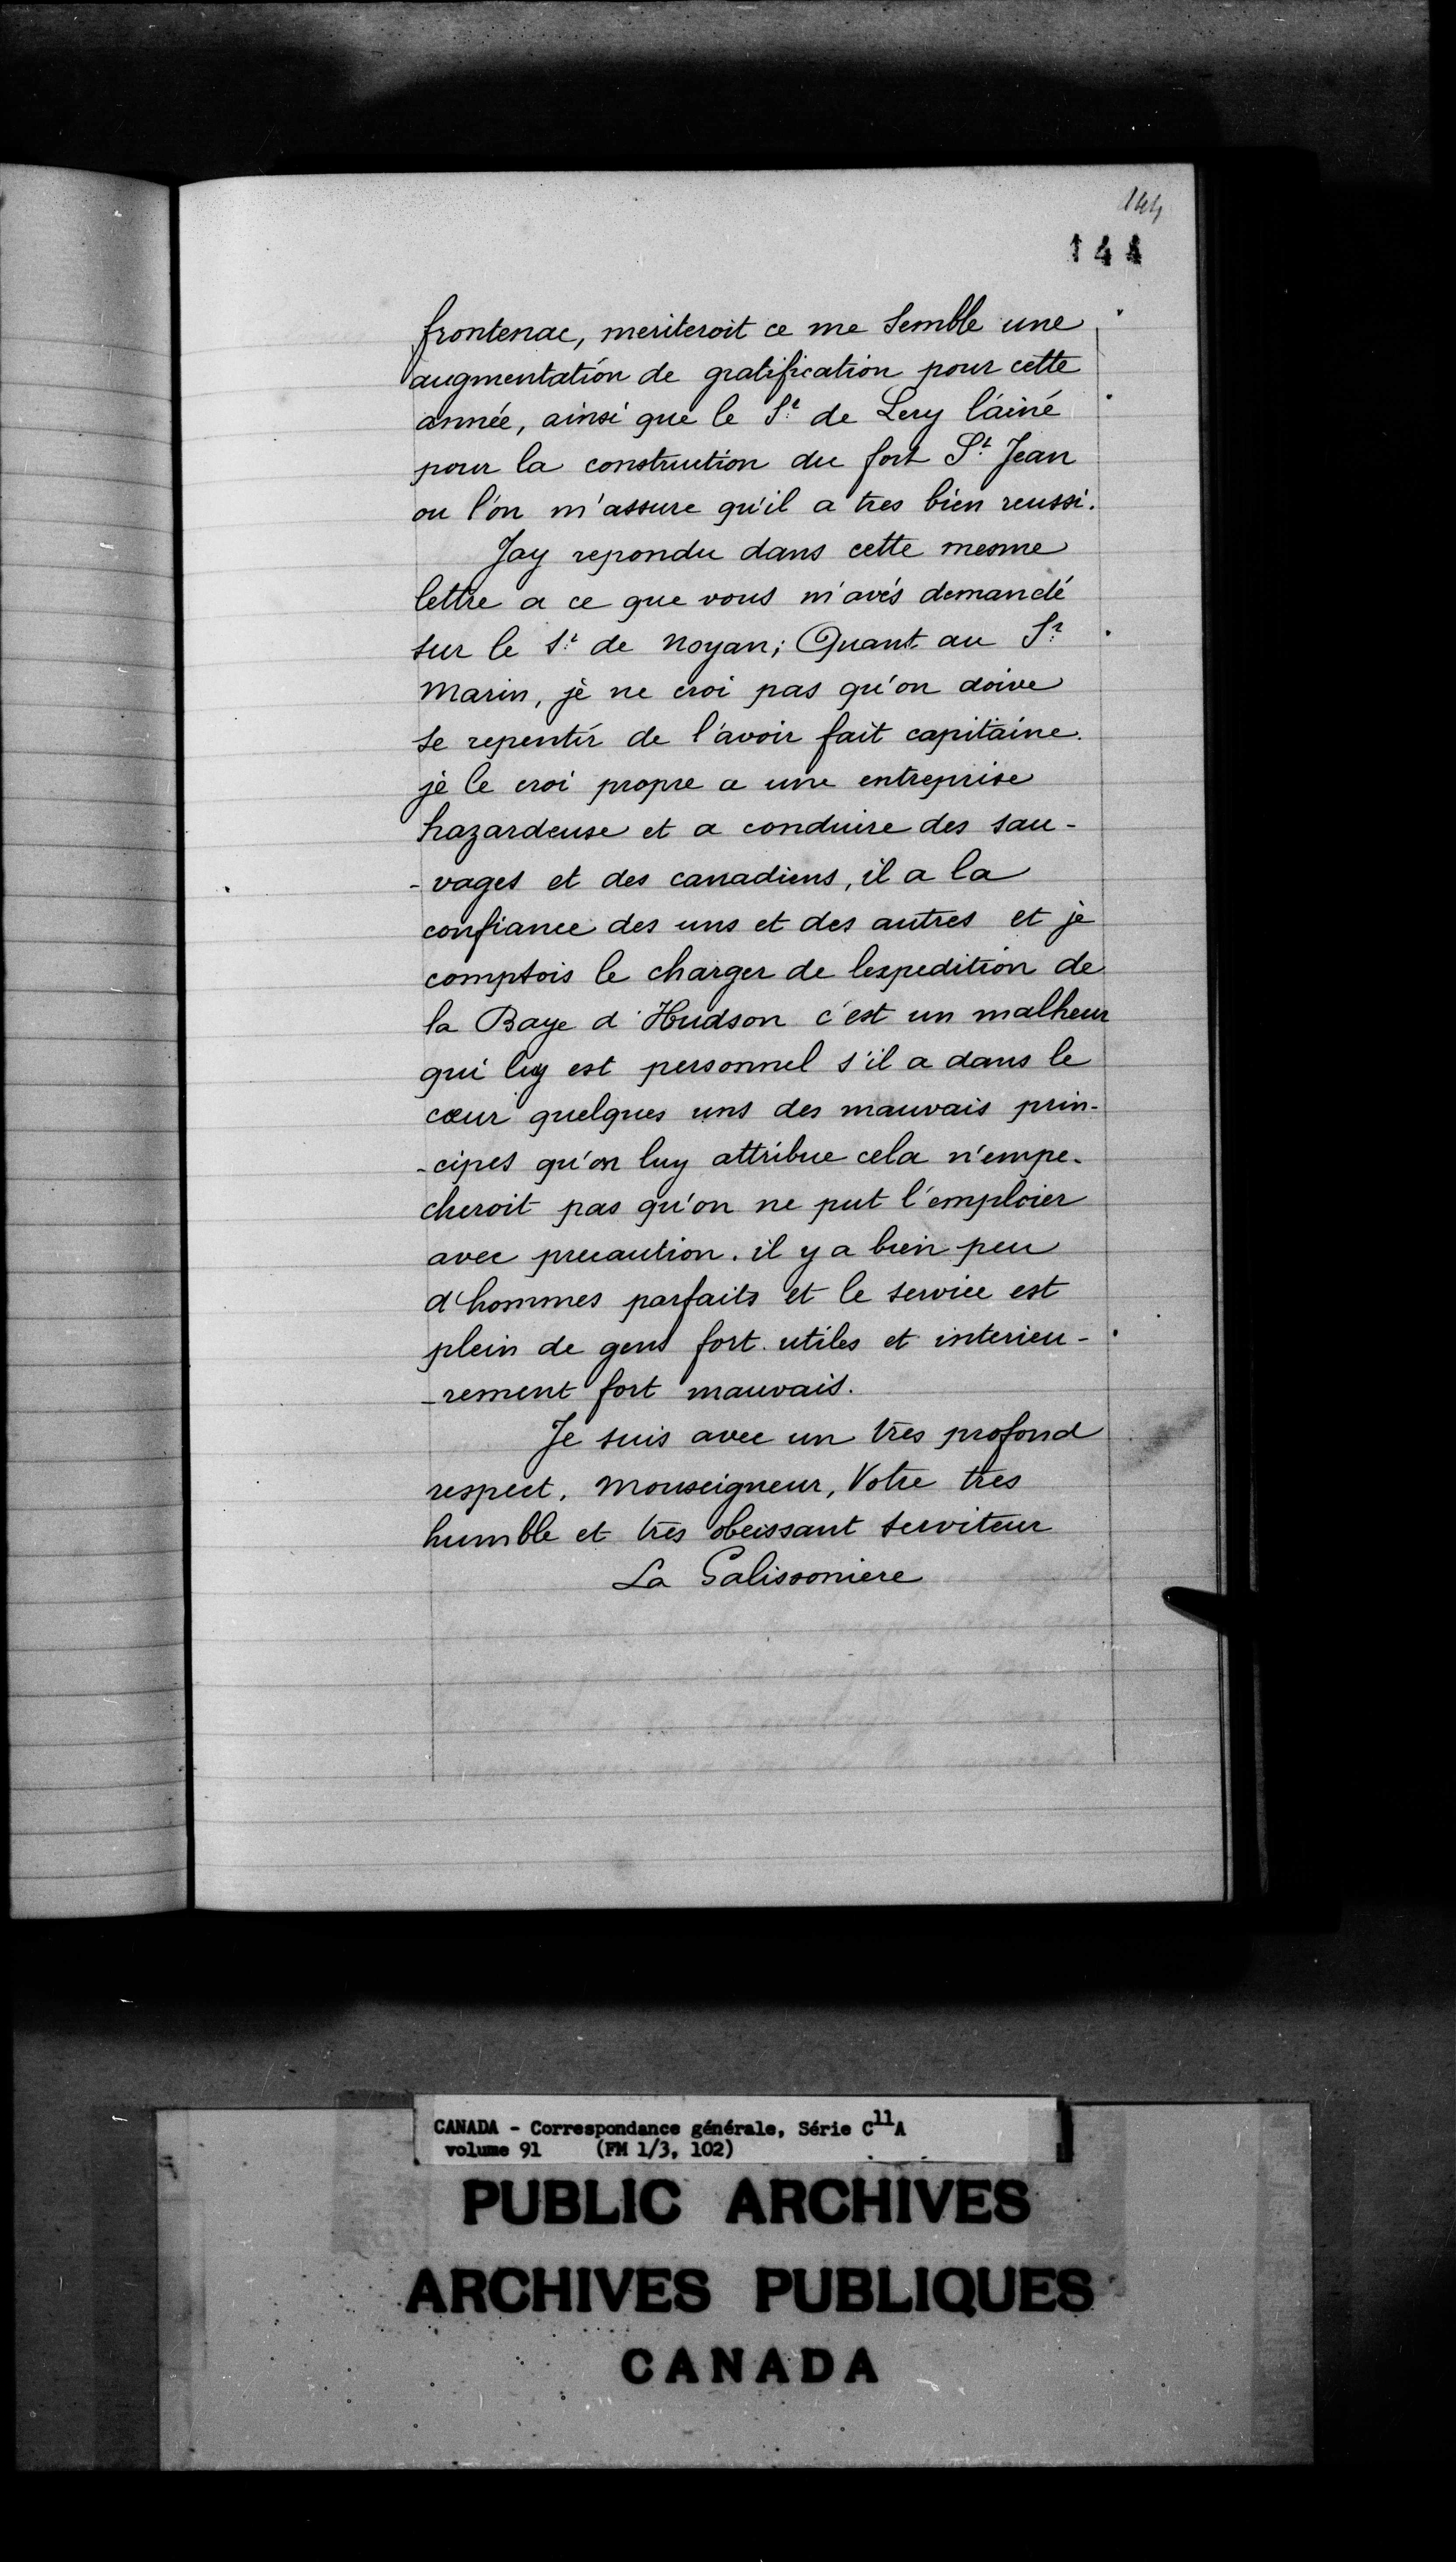 144
144
frontenac, meriteroit ce me semble une
augmentation de gratification pour cette
année, ainsi que le Sr. de Lery l'ainé
pour la construction du fort St. Jean
ou l'on m'assure qu'il a tres bien reussi.
Jay repondu dans cette mesme
lettre a ce que vous m'avés demandé
sur le Sr. de Noyan; Quant au Sr.
Marin, je ne croi pas qu'on doive
se repentir de l'avoir fait capitaine.
je le croi propre a une entreprise
hazardeuse et a conduire des sau-
-vages et des canadiens, il a la
confiance des uns et des autres et je
comptois le charger de lexpedition de
la Baye d'Hudson c'est un malheur
qui luy est personnel s'il a dans le
cœur quelques uns des mauvais prin-
-cipes qu'on luy attribue cela n'empe-
cheroit pas qu'on ne put l'emploier
avec precaution. il y a bien peu
d'hommes parfaits et le service est
plein de gens fort utiles et interieu-
-rement fort mauvais.
Je suis avec un très profond
respect, Monseigneur, Votre tres
humble et très obeissant serviteur
La Galissoniere
CANADA - Correspondance générale, Série C11A
volume 91 (FM 1/3, 102)
PUBLIC ARCHIVES
ARCHIVES PUBLIQUES
CANADA